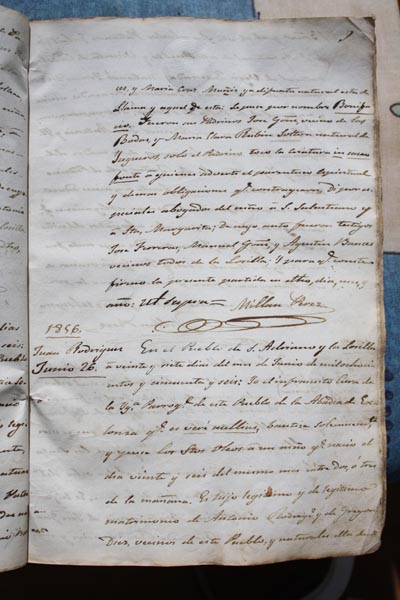 y Maria Cruz Muñiz ya difunta natural esta de
y aquel de esta: Se puso por nombre Bonifa
cio. Fueron sus Padrinos Jose Gonz. vecino de las
Bodas, y Maria Clara Rubin Soltera natural de
solo el Padrino toco la criatura
a quienes adverti el parentesco espiritual
y demas obligaciones q. contrageron: Di por es
peciales abogados del niño a S.
a Sta. Margarita; De cuyo acto fueron testigos
Jose Manuel Gonz. y Agustin Bances
vecinos todos de la Losilla. Y para q. conste
firmo la presente partida en dho. dia, mes, y
año: Ut supra=
Millan
1856.
Juan Rodriguez
Junio 26.
En el Pueblo de S. Adriano y la Losilla
a veinte y siete dias del mes de Junio de mil ochoci
entos y cincuenta y seis: Yo el infrascrito Cura de
la Yg. Parroq. de este Pueblo de la Abadia de
q. es vere nullius; bautice solemnemente
y puse los Stos. Oleos a un niño q. nacio el
dia veinte y seis del mismo mes
de la mañana. Es hijo legitimo y de legitimo
matrimonio de Antonio Rodrig. y de Gregoria
Diez, vecinos de este Pueblo, y naturales